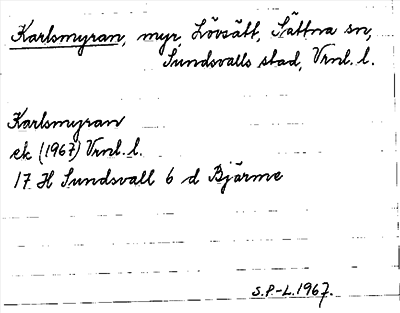 Karlsmyran, myr, Lövsätt, Sättna sn,
Sundsvalls stad, Vrnl. l.
Karlsmyran
ek (1967) Vrnl. l.
17 H Sundsvall 6 d Bjärme
S.P-L. 1967.